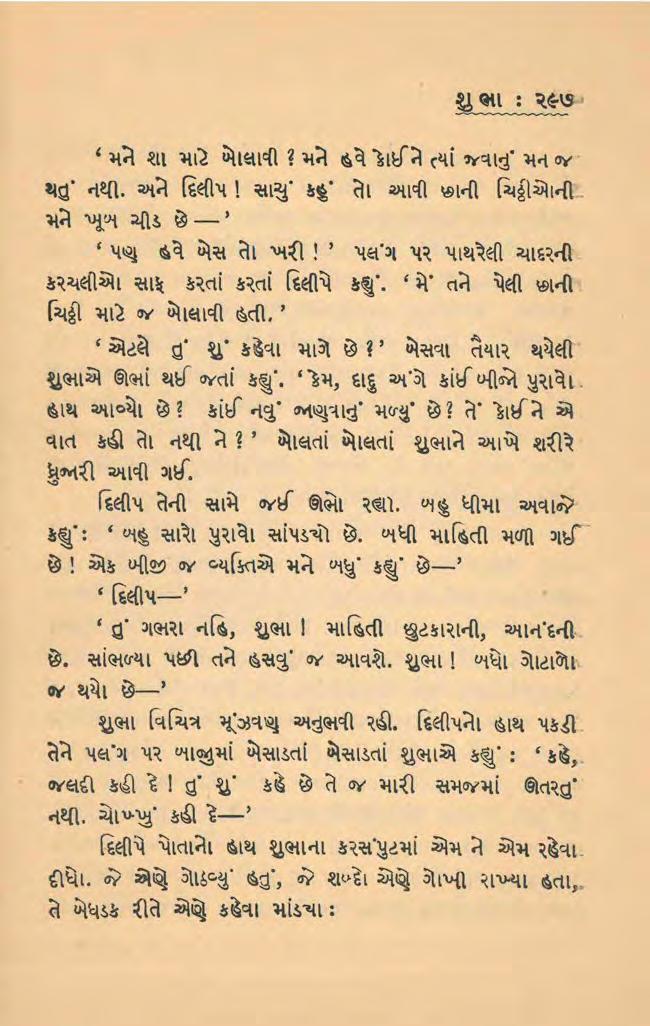 શુભા : ૨૯૭
‘ મને શા માટે બોલાવી ? મને હવે કોઈ ને ત્યાં જવાનું મન જ
થતું નથી. અને દિલીપ ! સાચું કહું તો આવી છાની ચિઠ્ઠીઓની
મને ખૂબ ચીડ છે —’
‘ પણ હવે બેસ તો ખરી ! ’ પલંગ પર પાથરેલી ચાદરની
કરચલીઓ સાફ કરતાં કરતાં દિલીપે કહ્યું. ‘ મેં તને પેલી છાની
ચિઠ્ઠી માટે જ બોલાવી હતી. ’
‘ એટલે તું શું કહેવા માગે છે ? ’ બેસવા તૈયાર થયેલી
શુભાએ ઊભાં થઈ જતાં કહ્યું. ‘ કેમ, દાદુ અંગે કાંઈ બીજો પુરાવો
હાથ આવ્યો છે ? કાંઈ નવું જાણવાનું મળ્યું છે ? તેં કોઈ ને એ
વાત કહી તો નથી ને ? ’ બોલતાં બોલતાં શુભાને આખે શરીરે
ધ્રુજારી આવી ગઈ.
દિલીપ તેની સામે જઈ ઊભો રહ્યો. બહુ ધીમા અવાજે
કહ્યું : ‘ બહુ સારો પુરાવો સાંપડ્યો છે. બધી માહિતી મળી ગઈ
છે ! એક બીજી જ વ્યક્તિએ મને બધું કહ્યું છે—’
‘ દિલીપ—’
‘ તું ગભરા નહિ, શુભા ! માહિતી છુટકારાની, આનંદની
છે. સાંભળ્યા પછી તને હસવું જ આવશે. શુભા ! બધો ગોટાળો
જ થયો છે—’
શુભા વિચિત્ર મૂંઝવણ અનુભવી રહી. દિલીપનો હાથ પકડી
તેને પલંગ પર બાજુમાં બેસાડતાં બેસાડતાં શુભાએ કહ્યું : ‘ કહે,
જલદી કહી દે ! તું શું કહે છે તે જ મારી સમજમાં ઊતરતું
નથી. ચોખ્ખું કહી દે—’
દિલીપે પોતાનો હાથ શુભાના કરસંપુટમાં એમ ને એમ રહેવા
દીધો. જે એણે ગોઠવ્યું હતું, જે શબ્દો એણે ગોખી રાખ્યા હતા,
તે બેધડક રીતે એણે કહેવા માંડ્યા :